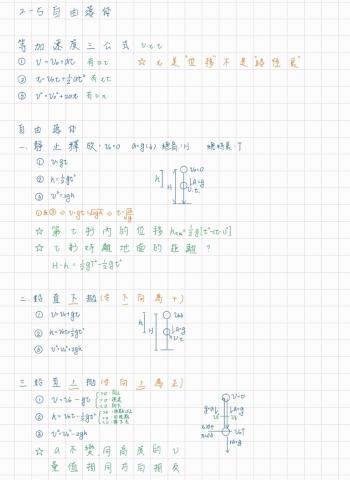 2-5 自由落体
等加速度三公式 v.x.t
① v=v₀+at 有v.t ☆ x是"位移"不是"路徑長"
② x=v₀t+½at² 有x.t
③ v²=v₀²+2ax 有v.x
自由落体
一. 靜止釋放: v₀=0 a=g(↓) 總高:H 總時長:T
① v=gt
② h=½gt²
③ v²=2gh
h H v₀=0 ↓a=g v.t
☆ 第t秒內的位移 ½g[t²-(t-1)²]
☆ t秒時離地面的距離?
H-h=½gT²-½gt²
二. 鉛直下拋(令下向為+)
① v=v₀+gt
② h=v₀t+½gt²
③ v²=v₀²+2gh
h H v₀ ↓a=g v.t
三. 鉛直上拋(令向上為正)
① v=v₀-gt
② h=v₀t-½gt²
③ v²=v₀²-2gh
v=0 ↓a=g
☆ a不變,同高度的v
量值相同方向相反